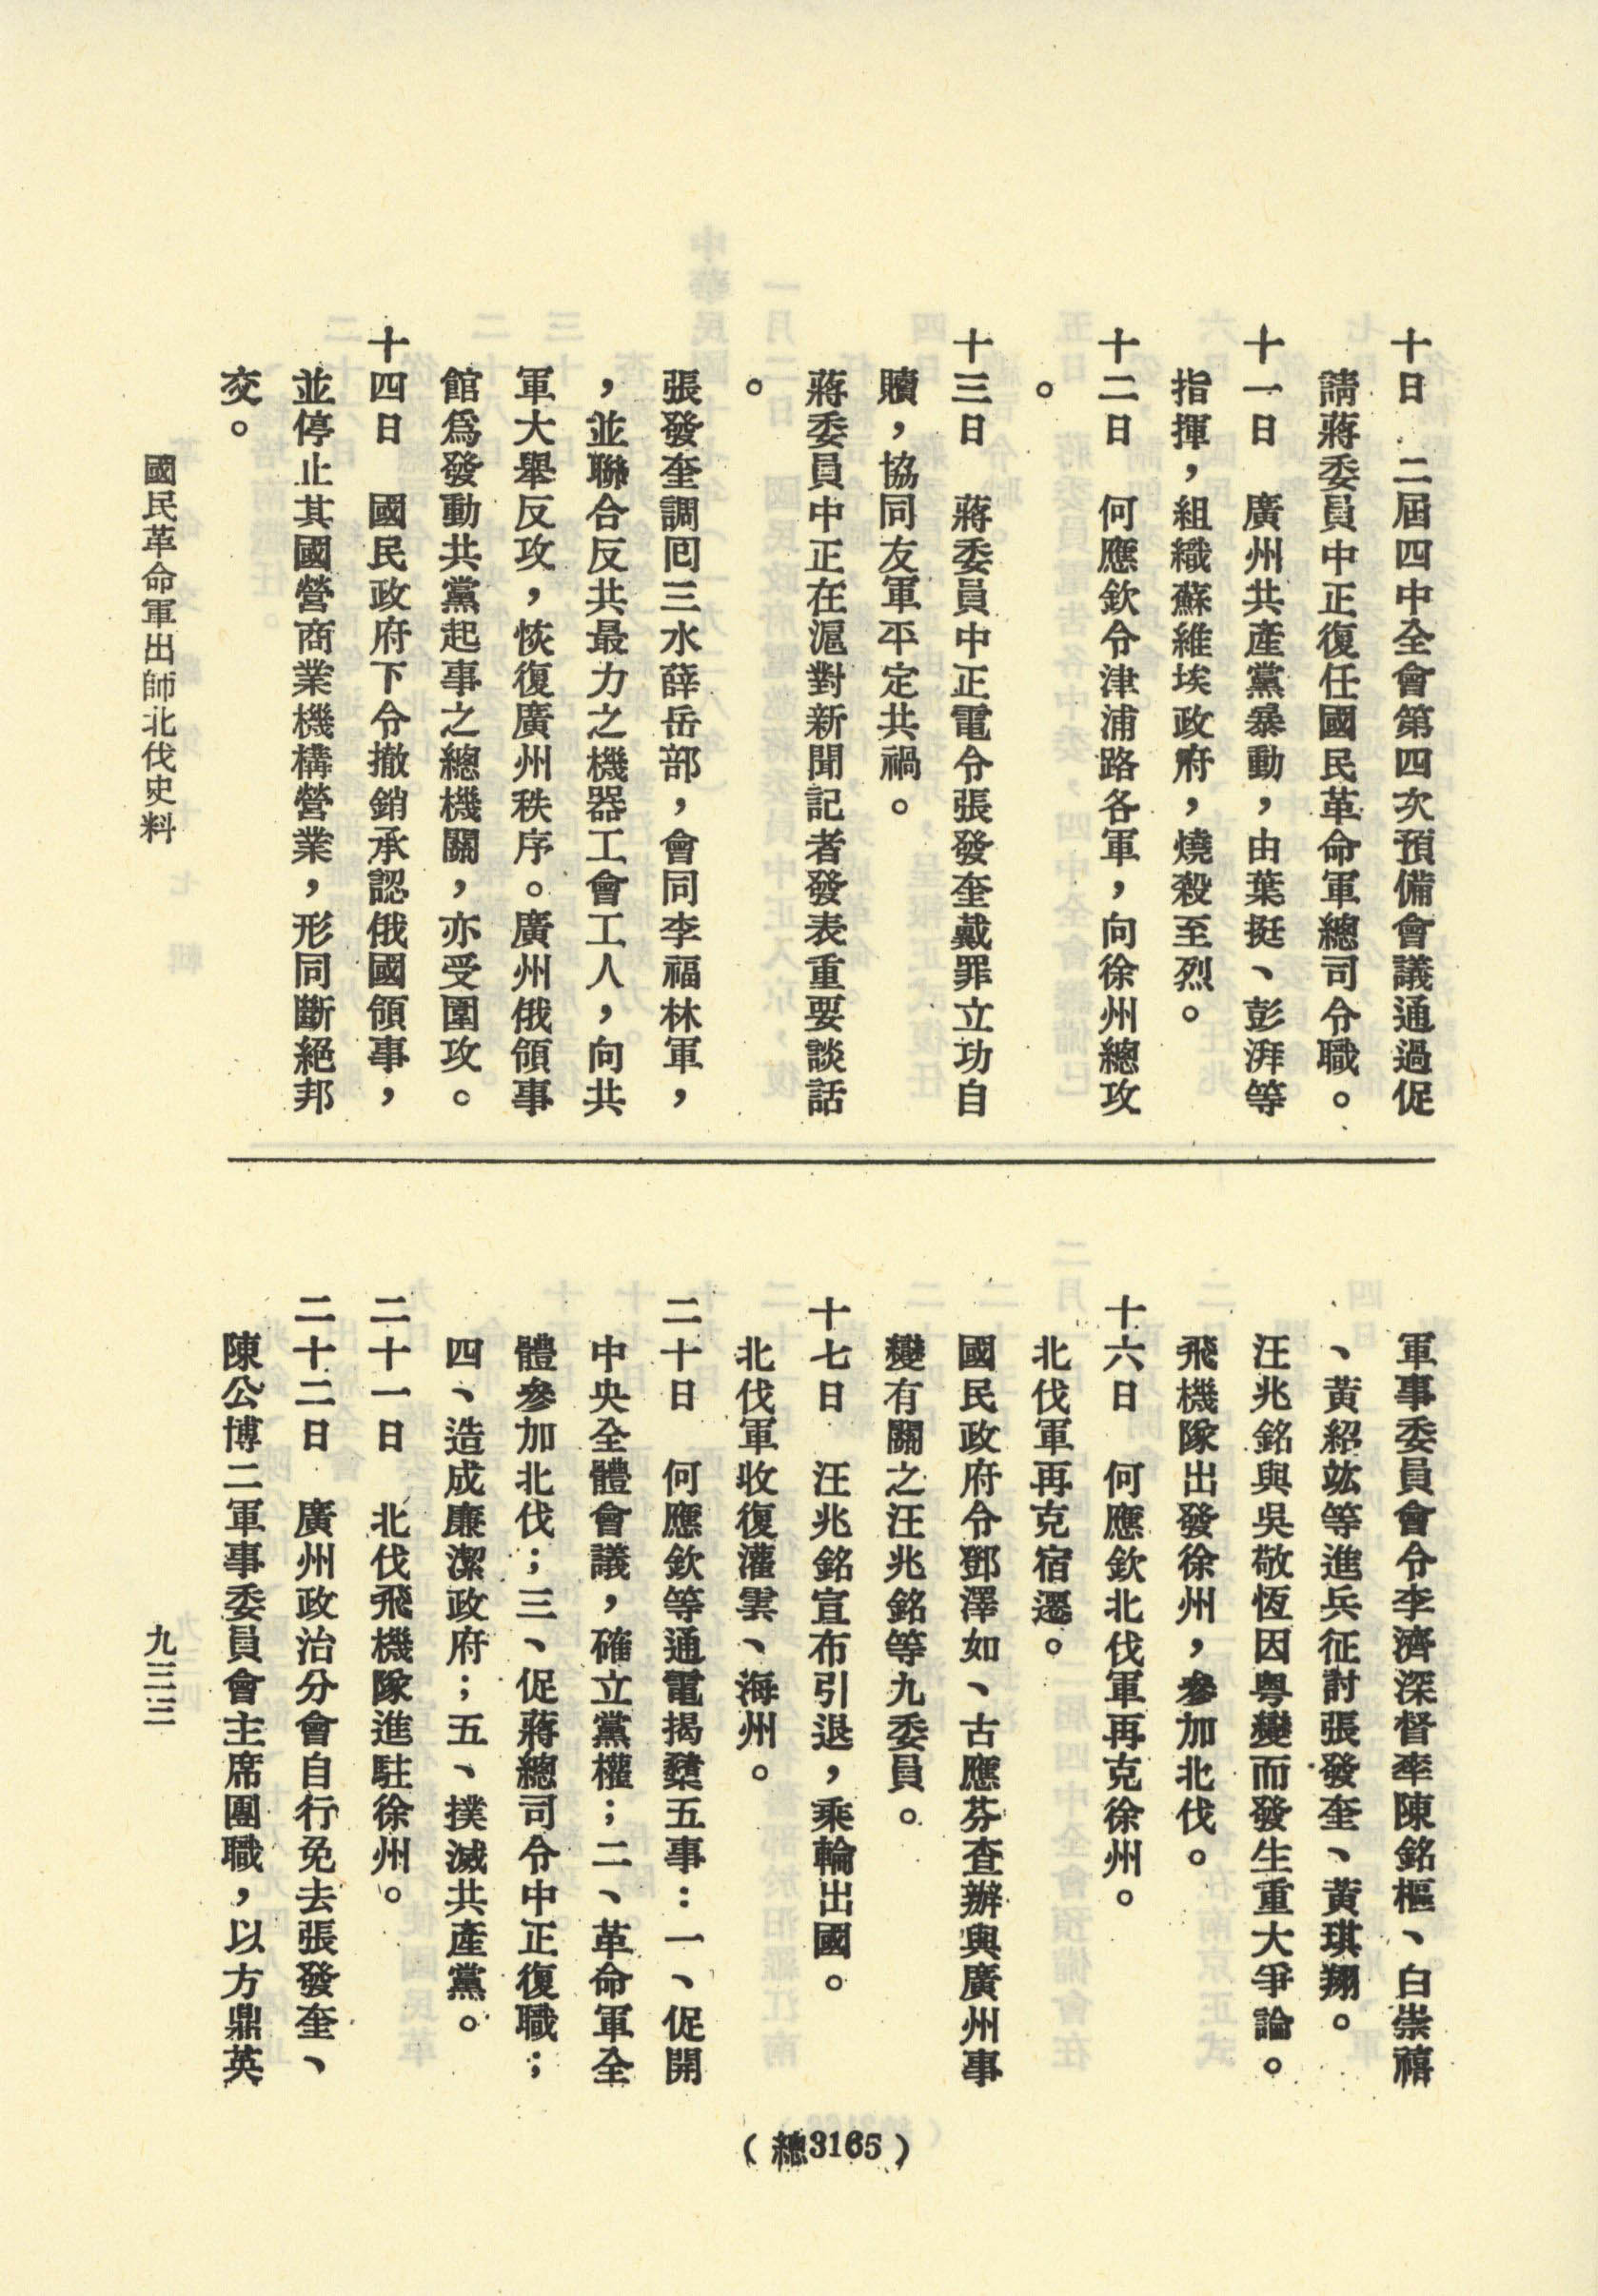 十日　二屆四中全會第四次預備會議通過促
請蔣委員中正復任國民革命軍總司令職。
十一日　廣州共產黨暴動，由葉挺、彭湃等
指揮，組織蘇維埃政府，燒殺至烈。
十二日　何應欽令津浦路各軍，向徐州總攻
。
十三日　蔣委員中正電令張發奎戴罪立功自
贖，協同友軍平定共禍。
蔣委員中正在滬對新聞記者發表重要談話
。
張發奎調回三水薛岳部，會同李福林軍，
，並聯合反共最力之機器工會工人，向共
軍大舉反攻，恢復廣州秩序。廣州俄領事
館爲發動共黨起事之總機關，亦受圍攻。
十四日　國民政府下令撤銷承認俄國領事，
並停止其國營商業機構營業，形同斷絕邦
交。
軍事委員會令李濟深督率陳銘樞、白崇禧
、黃紹竑等進兵征討張發奎、黃琪翔。
汪兆銘與吳敬恆因粵變而發生重大爭論。
飛機隊出發徐州，參加北伐。
十六日　何應欽北伐軍再克徐州。
北伐軍再克宿遷。
國民政府令鄧澤如、古應芬查辦與廣州事
變有關之汪兆銘等九委員。
十七日　汪兆銘宣布引退，乘輪出國。
北伐軍收復灌雲、海州。
二十日　何應欽等通電揭櫫五事：一、促開
中央全體會議，確立黨權；二、革命軍全
體參加北伐；三、促蔣總司令中正復職；
四、造成廉潔政府；五、撲滅共產黨。
二十一日　北伐飛機隊進駐徐州。
二十二日　廣州政治分會自行免去張發奎、
陳公博二軍事委員會主席團職，以方鼎英
國民革命軍出師北伐史料
九三三
（總3165）